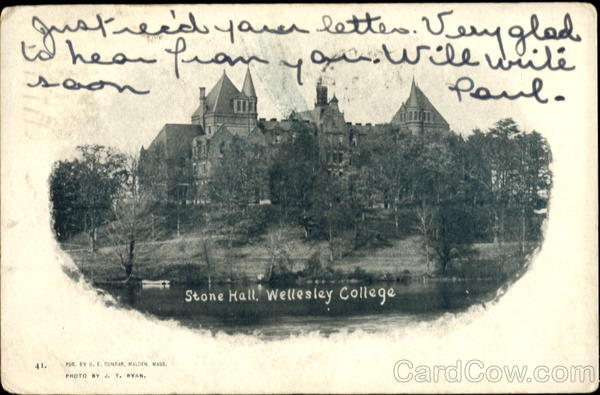 Just rec'd your letter. Very glad
to hear from you. Will write
soon Paul.
Stone Hall, Wellesley College
41. PUB. BY G. E. DUNBAR, MALDEN, MASS.
PHOTO BY J. T. RYAN.
CardCow.com